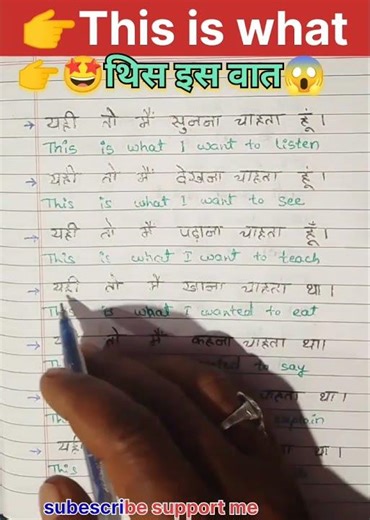 👉This is what
👉🤩थिस इस वात😱
→ यही तो मैं सुनना चाहता हूं।
This is what I want to listen
→ यही तो मैं देखना चाहता हूं।
This is what I want to see
→ यही तो मैं पढ़ाना चाहता हूँ।
This is what I want to teach
→ यही तो मैं खाना चाहता था।
This is what I wanted to eat
→ तो मैं कहना चाहता था।
to say
→ चाहता था।
explain
→ यही था।
This
subescribe support me